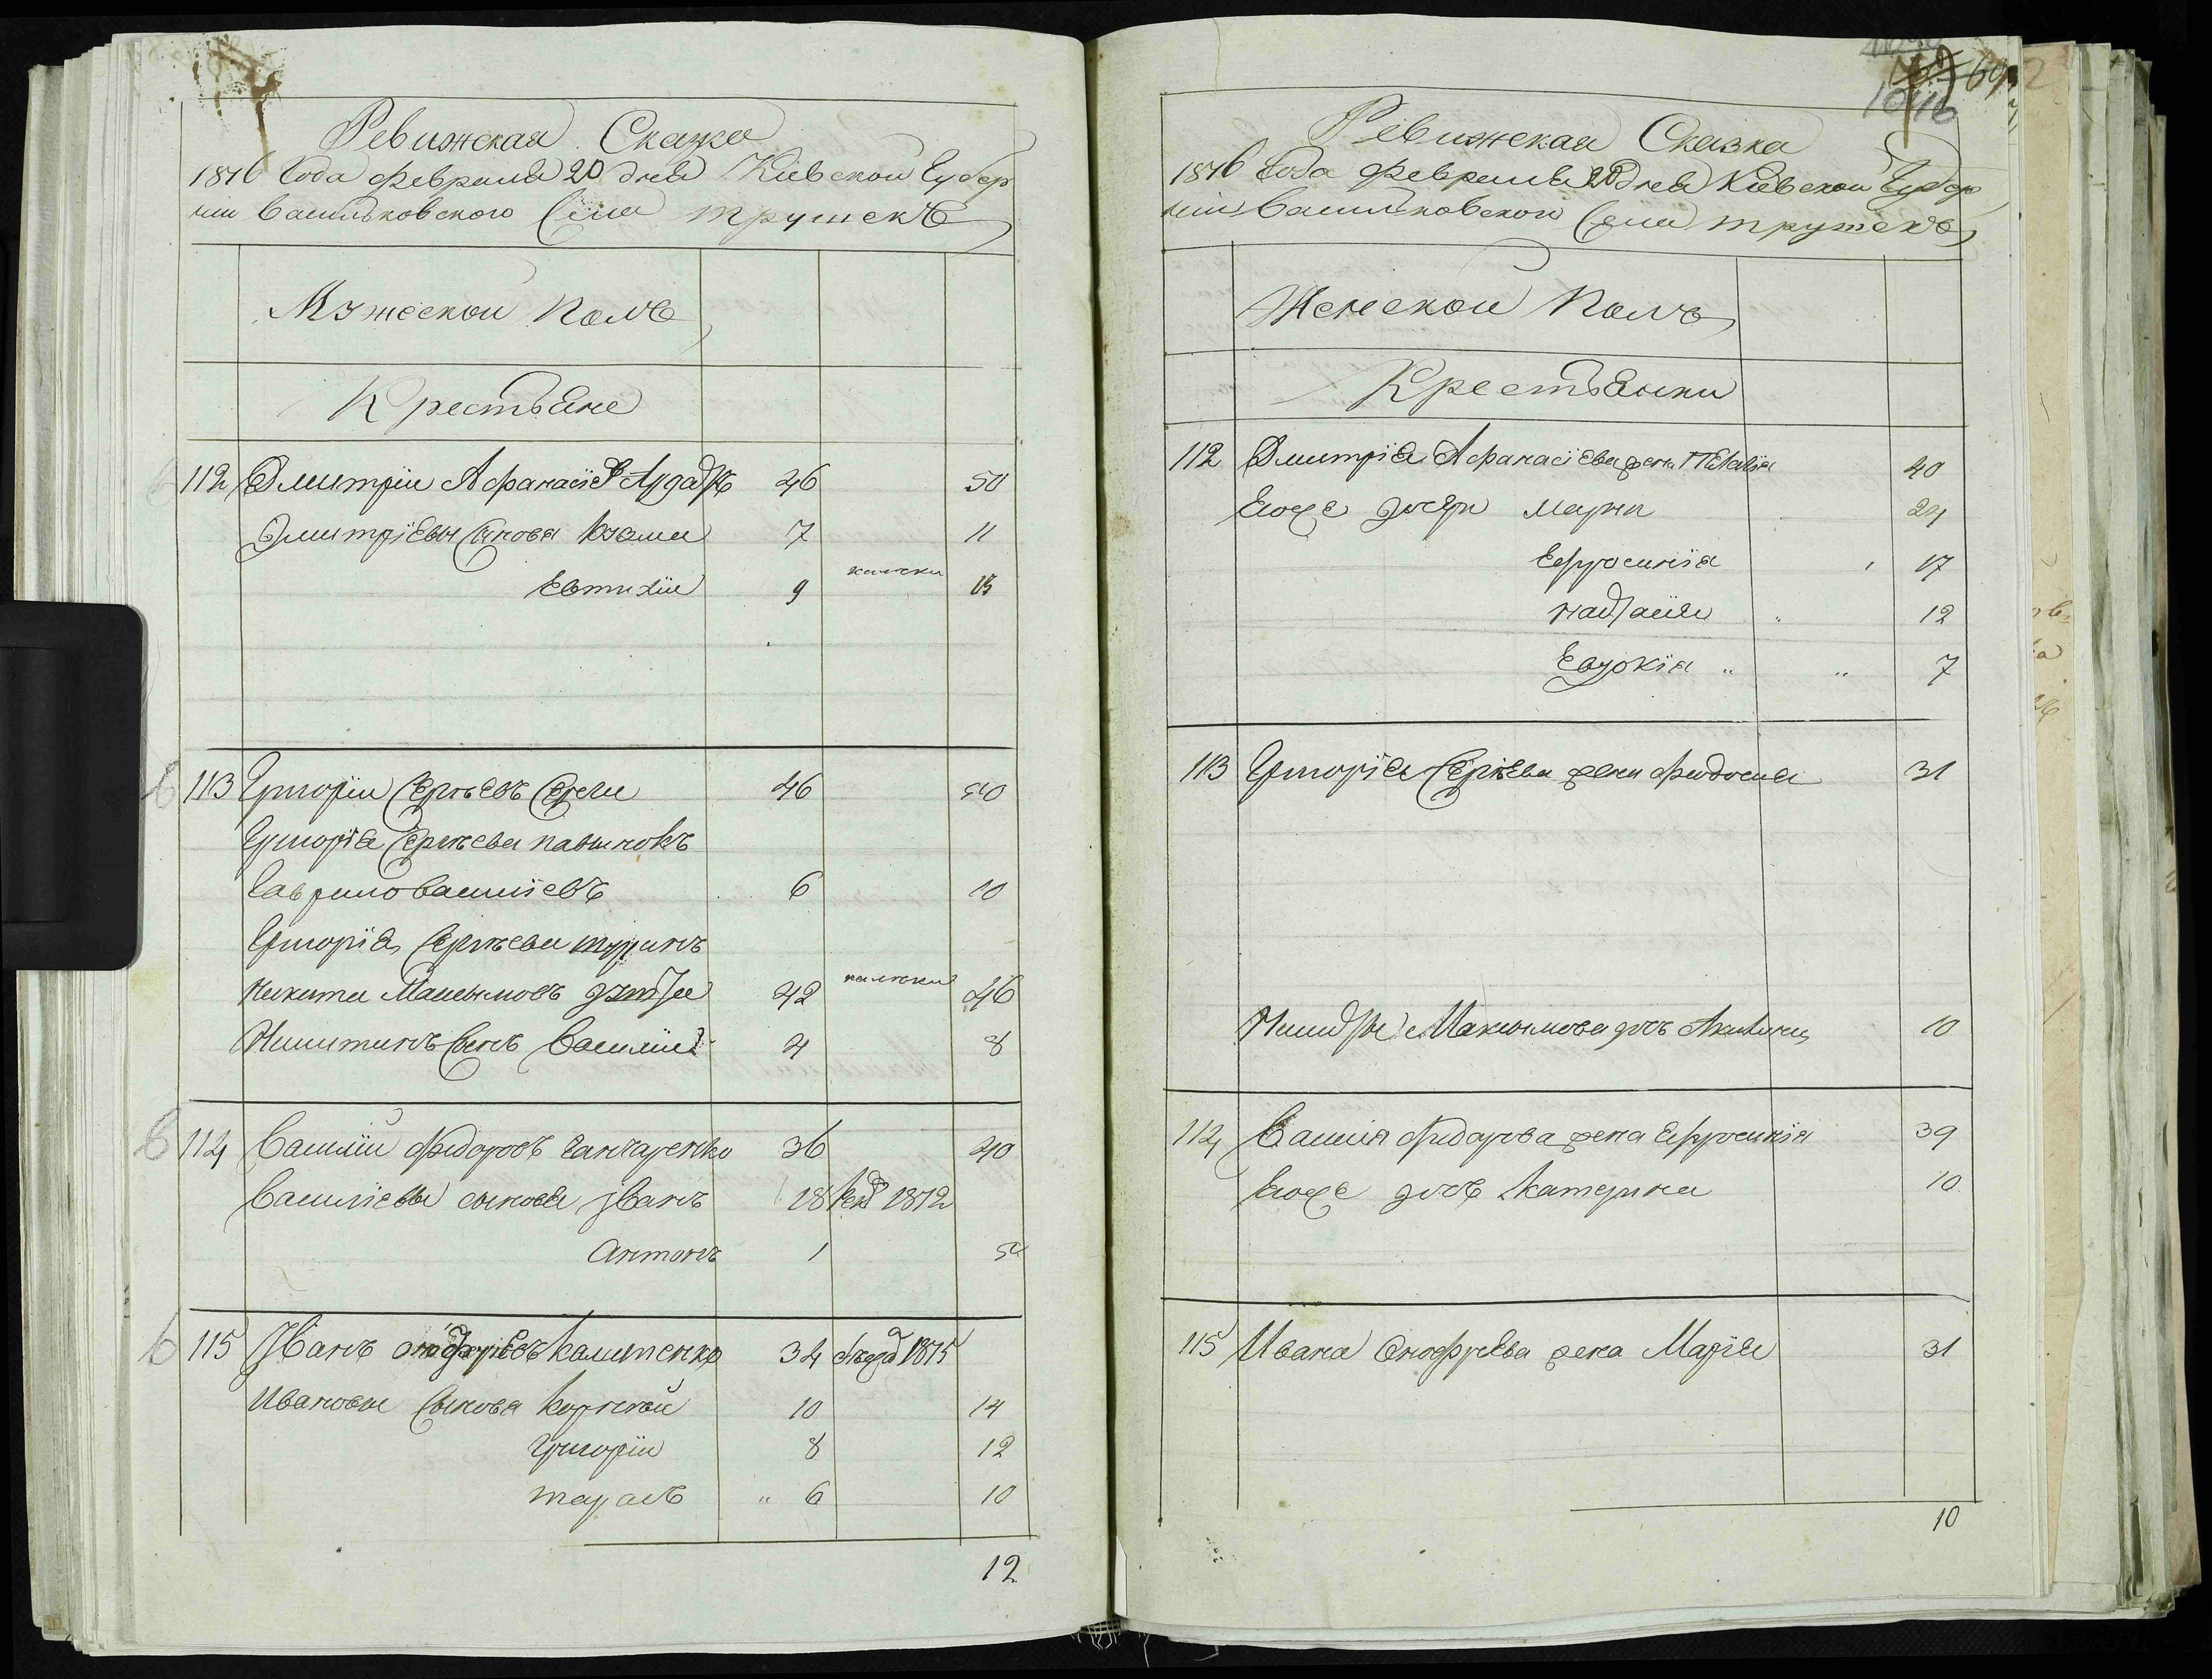 Ревижская Сказка
1816 Года февраля 20 дня Киевской Губер
нии Васильковского Села трушекъ
Мужеской Полъ
Крестьяне
112 Дмитрiи Афанасiевъ 46 50
Дмитрiевы Сынова Кузма 7 11
Евтихiи 9 13
113 Григорiи Сергѣевъ 46 50
Григорiя Сергѣева
Гаврило Василiевъ 6 10
Григорiя Сергѣева шуринъ
Никита Максымовъ 42 46
Никитинъ Сынъ Василiи 4 8
114 Василiи Федоровъ Ганчаренко 36 40
Василiевы сынове Iванъ 18 1812
Антонъ 1 5
115 Iванъ Онофрiевъ 34 1815
Ивановы Сынова Корнѣй 10 14
Григорiи 8 12
тарасъ " 6 10
12
Ревижская Сказка
1816 Года февраля 20 дня Киевской Губер
нии Васильковской Села трушекъ
Женской Полъ
Крестьянки
112 Дмитрiя Афанасiева жена Пелагiя 40
Егоже дочери Мария 24
Ефросинiя 17
12
Евдокiя " " 7
113 Григорiя Сергѣева жена Феодосия 31
Максымова дочь Акилина 10
114 Василiя Федорова жена Ефросинiя 39
Егоже дочь Катерина 10
115 Ивана Онофрiева жена Марiя 31
10